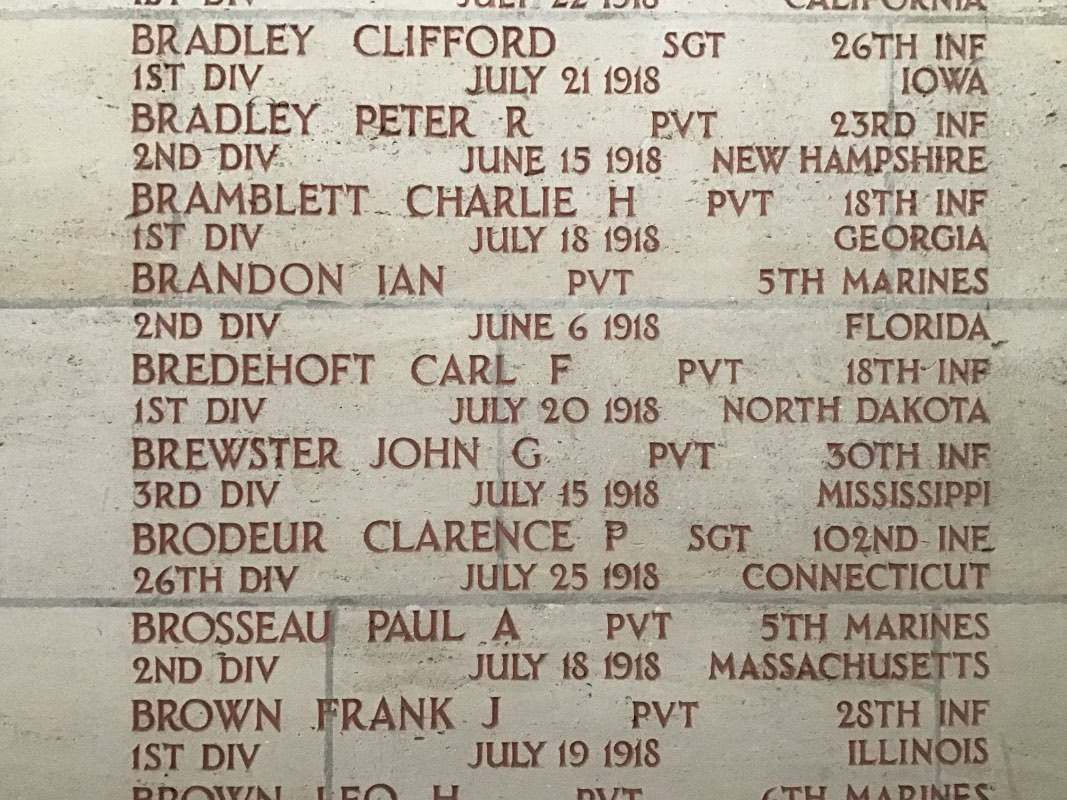 JULY 22 1918 CALIFORNIA
BRADLEY CLIFFORD SGT 26TH INF
1ST DIV JULY 21 1918 IOWA
BRADLEY PETER R PVT 23RD INF
2ND DIV JUNE 15 1918 NEW HAMPSHIRE
BRAMBLETT CHARLIE H PVT 18TH INF
1ST DIV JULY 18 1918 GEORGIA
BRANDON IAN PVT 5TH MARINES
2ND DIV JUNE 6 1918 FLORIDA
BREDEHOFT CARL F PVT 18TH INF
1ST DIV JULY 20 1918 NORTH DAKOTA
BREWSTER JOHN G PVT 30TH INF
3RD DIV JULY 15 1918 MISSISSIPPI
BRODEUR CLARENCE P SGT 102ND INF
26TH DIV JULY 25 1918 CONNECTICUT
BROSSEAU PAUL A PVT 5TH MARINES
2ND DIV JULY 18 1918 MASSACHUSETTS
BROWN FRANK J PVT 28TH INF
1ST DIV JULY 19 1918 ILLINOIS
BROWN LEO H PVT 6TH MARINES